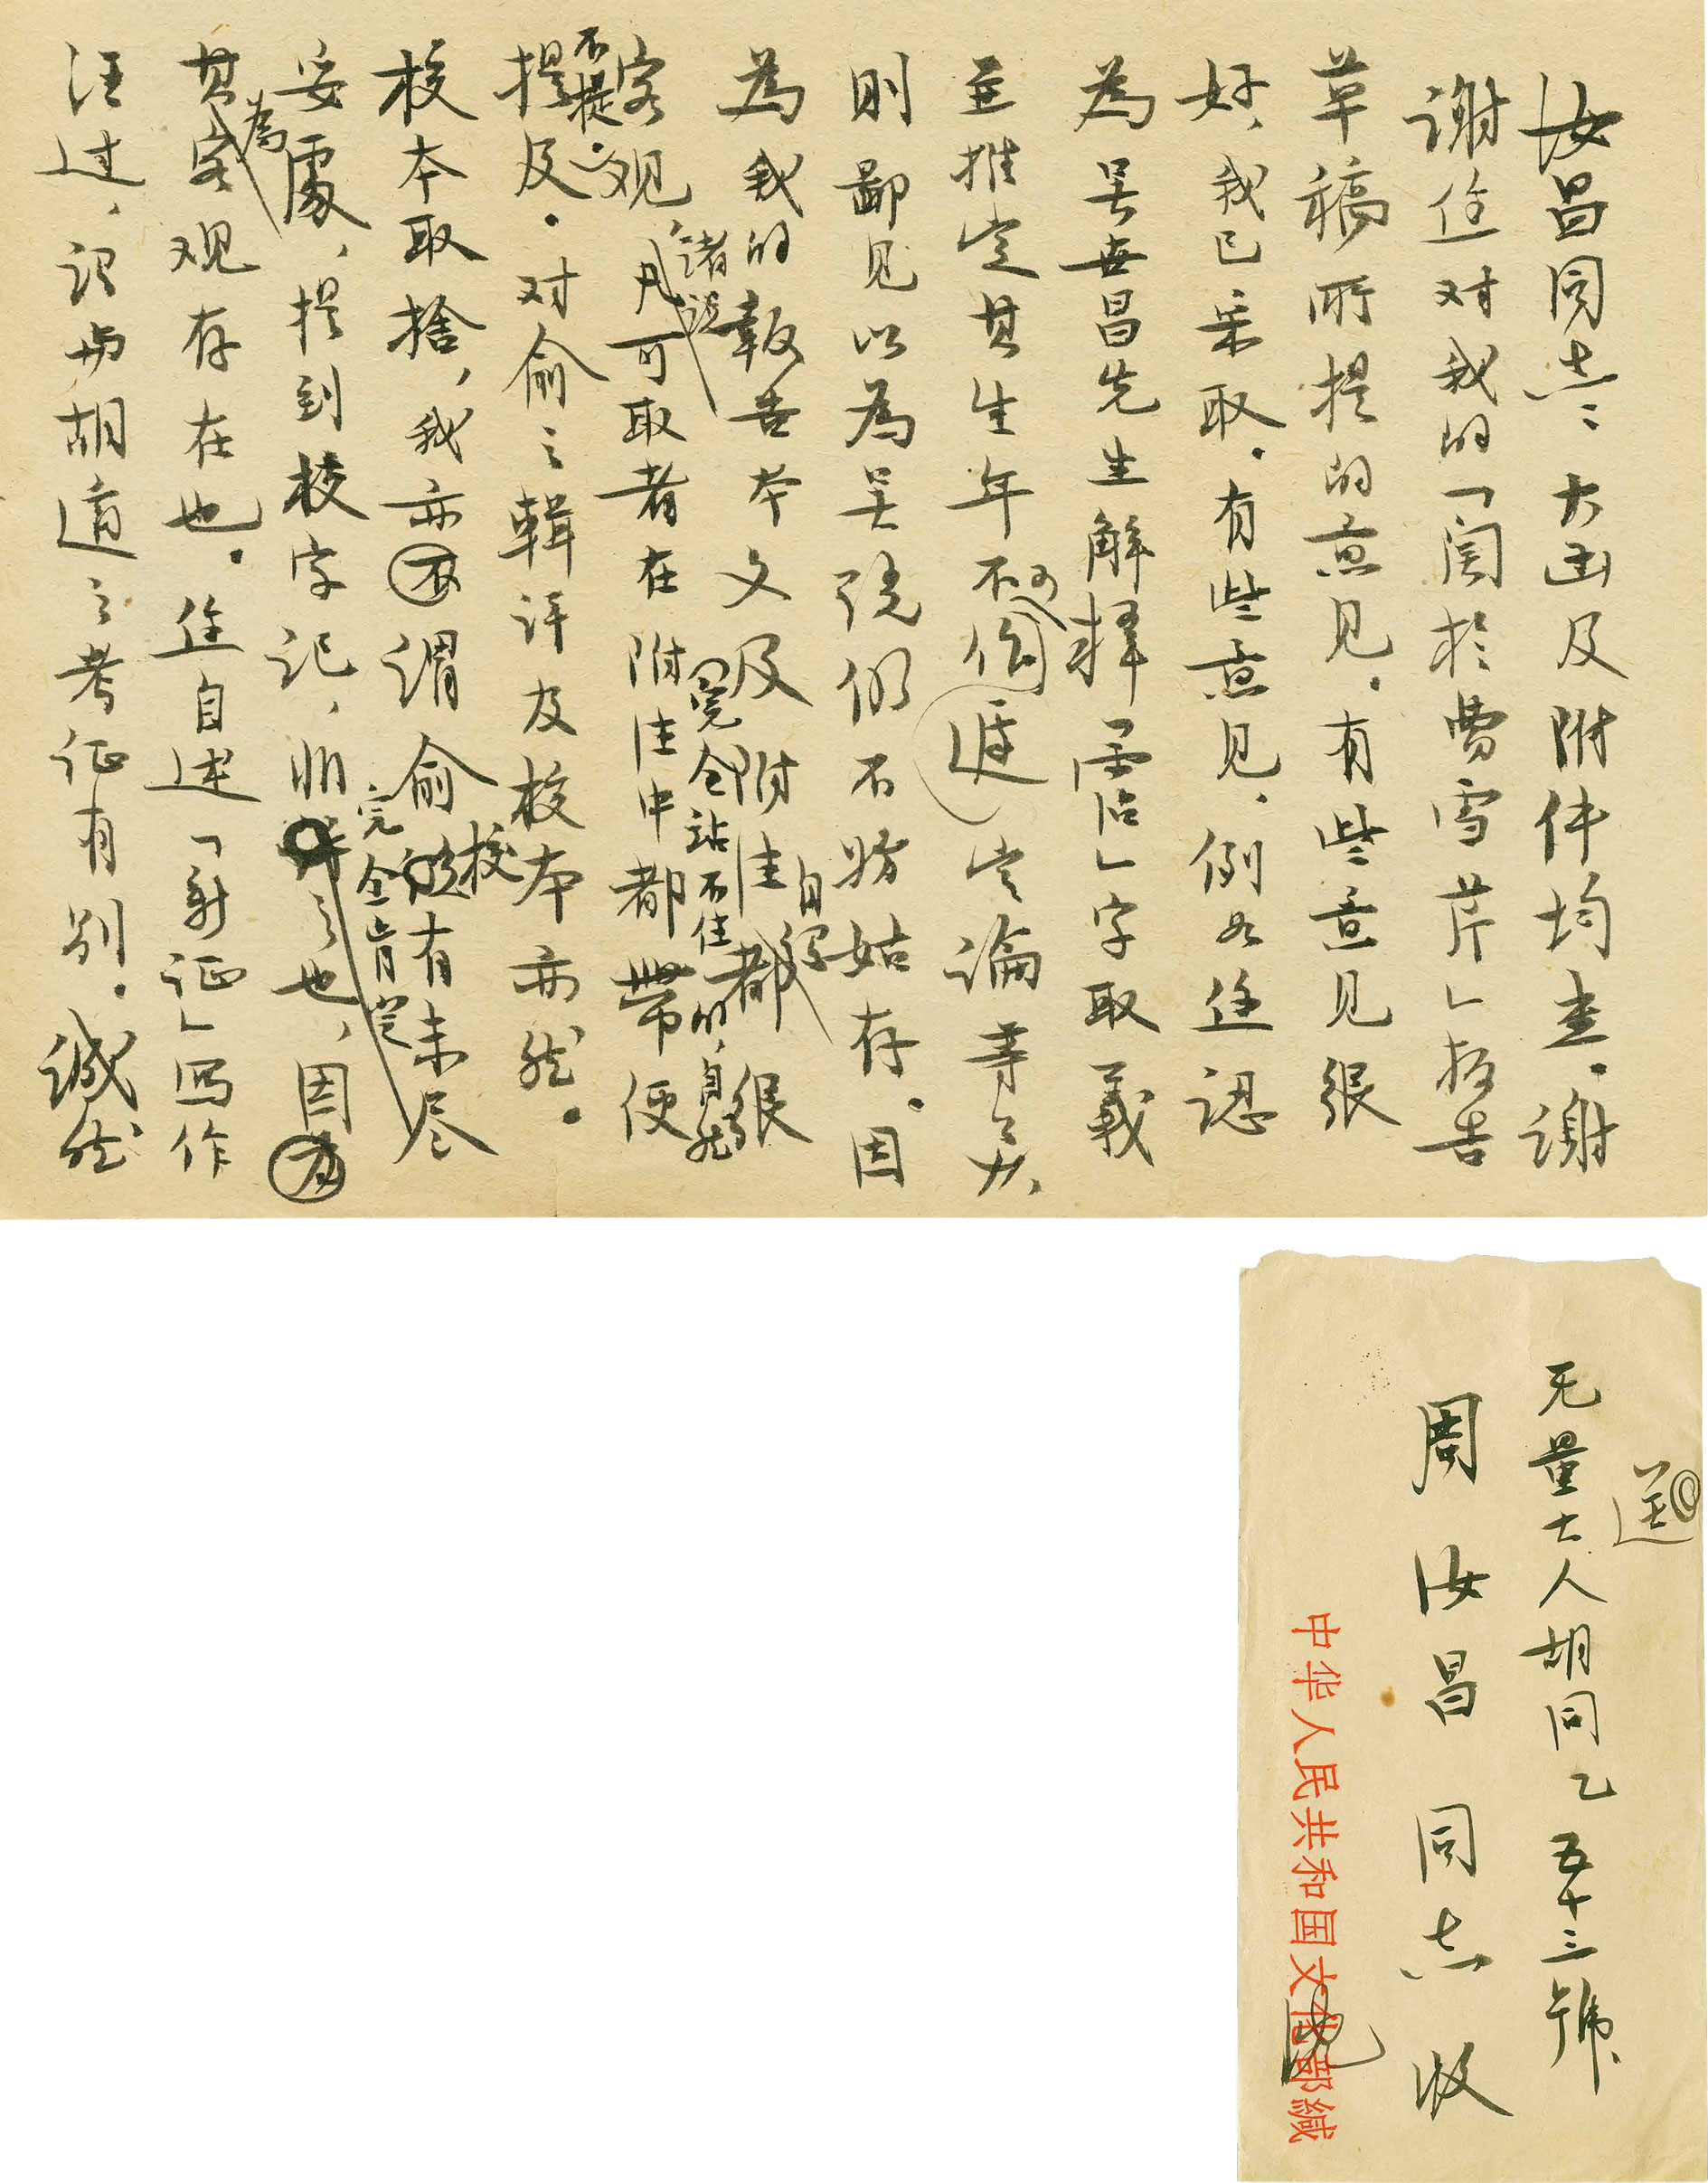 汝昌同志：大函及附件均奉。谢
谢近对我的「関於曹雪芹」报告
草稿所提的意见。有些意见很
好，我已采取。有些意见，例如近認
為吴世昌先生解释「霑」字取義
並推定其生年不可
定論等
則鄙见以為吴说仍不妨姑存。因
為我的報告本文及附注自都很
客观，諸说凡可取者在附注中都带便
完全站不住的，自然
不提。
提及。对俞之輯评及校本亦然。
校本取捨，我亦不谓俞校有未尽
妥處，提到校字记，非完全肯定之也，因
其為客观存在也。近自述「新证」写作
汪过，识与胡適之考证有别。誠然
无量大人胡同乙五十三號
周汝昌同志收
送
中华人民共和国文化部缄